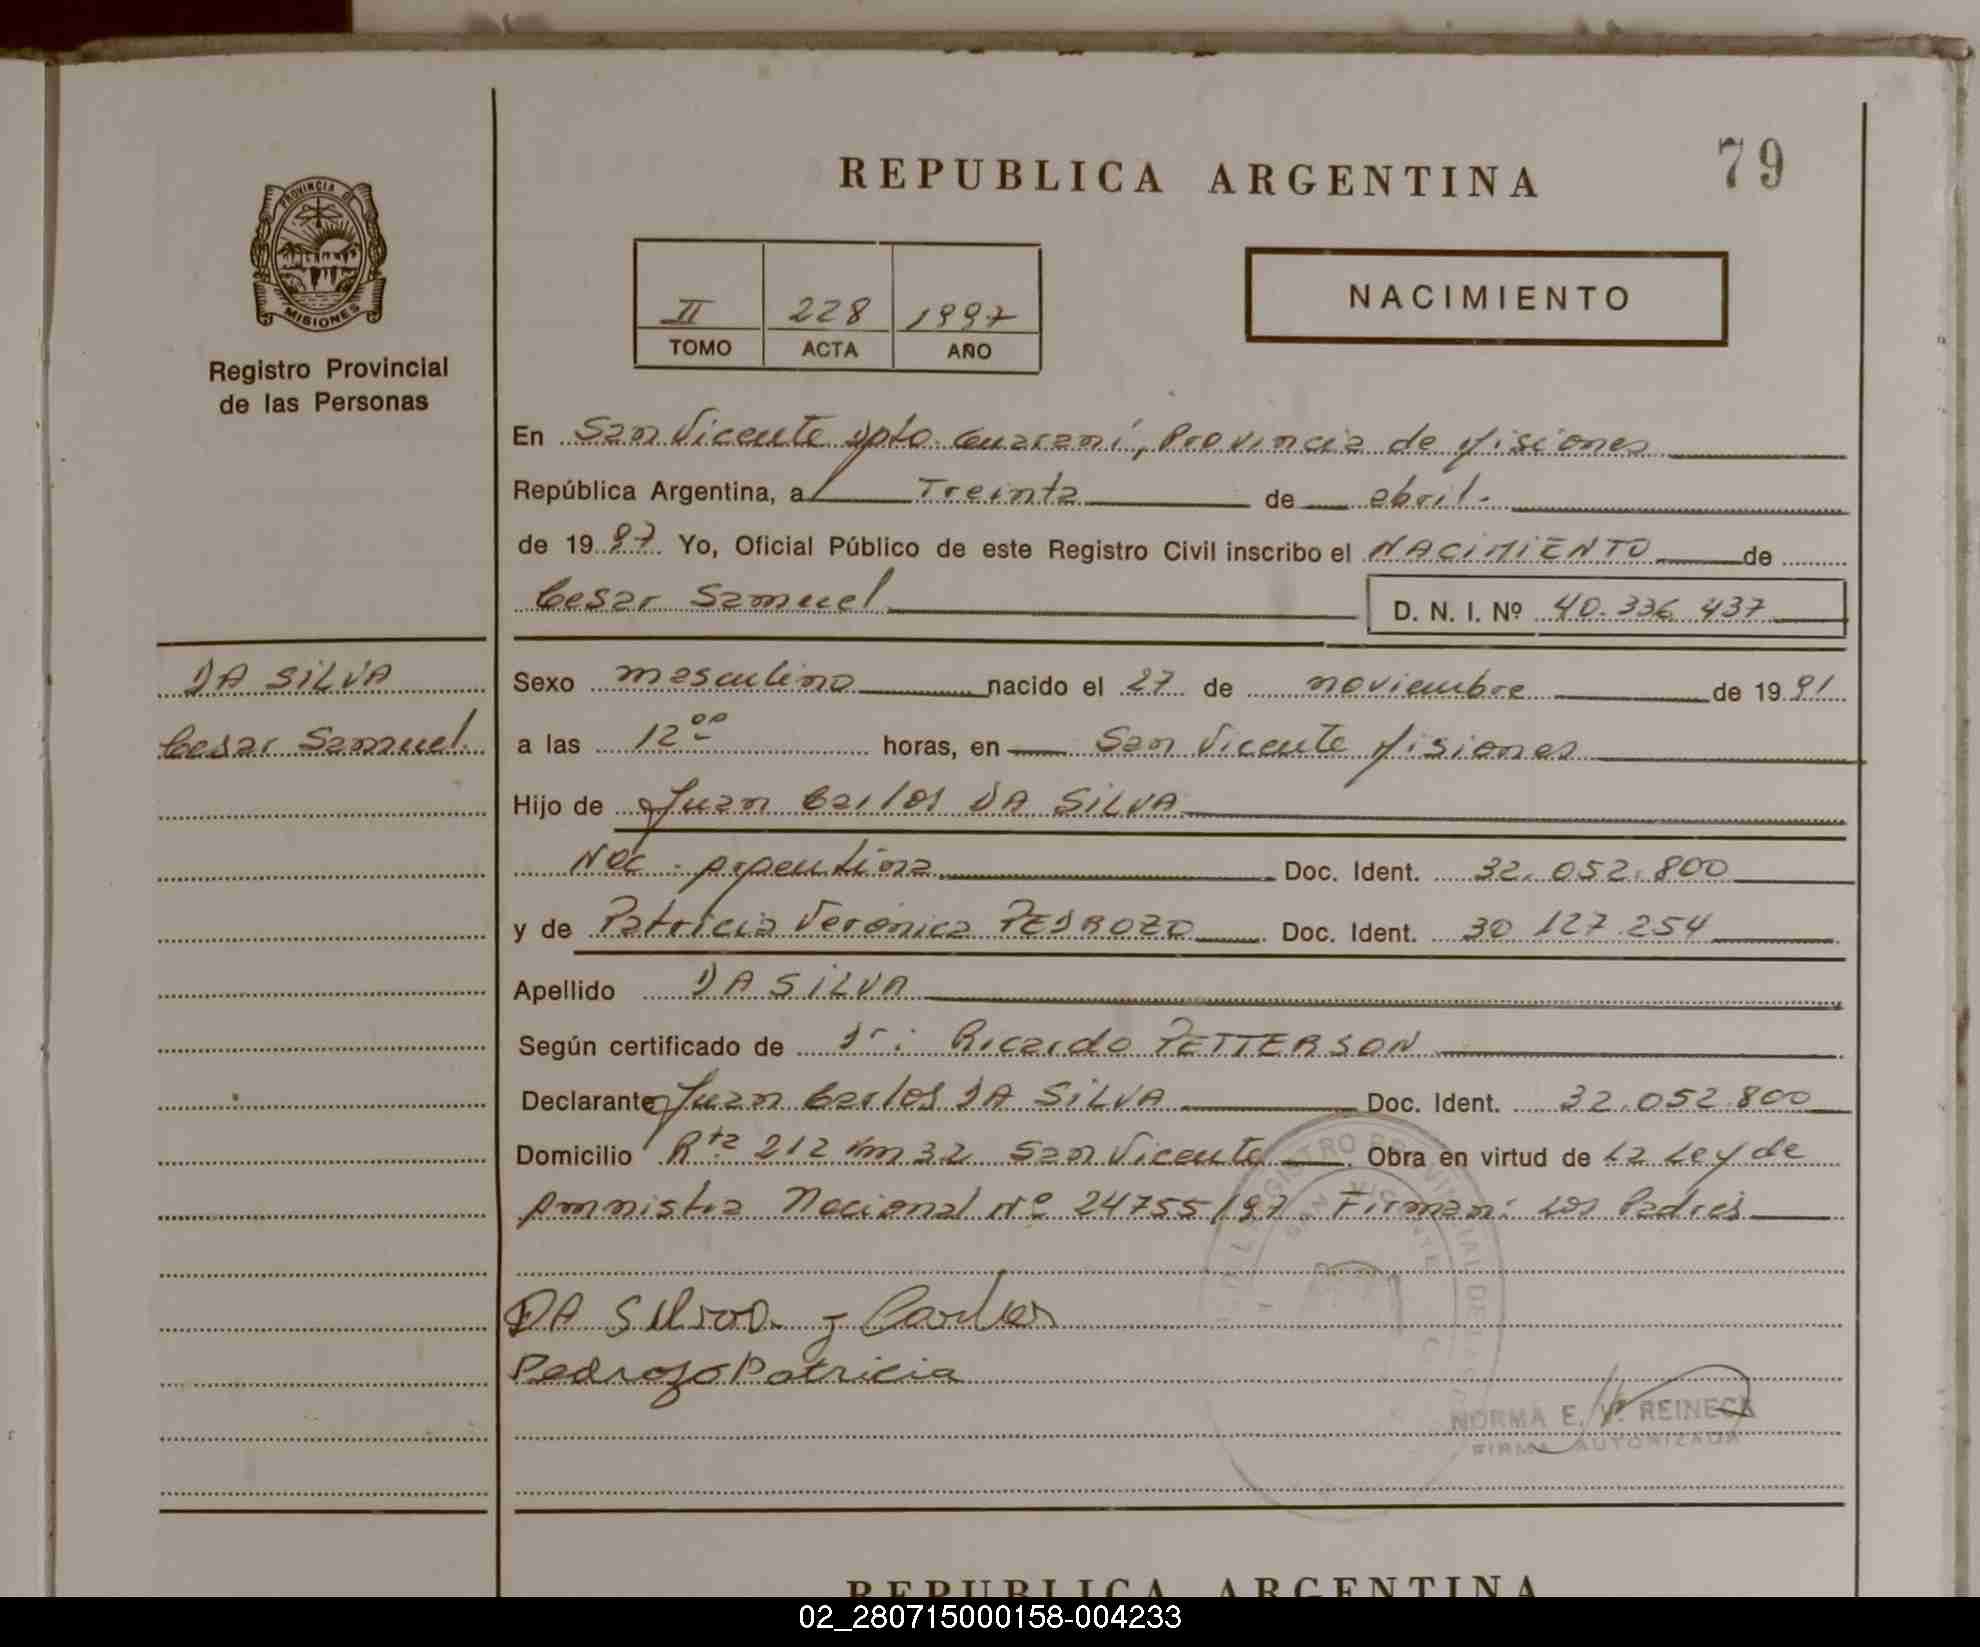 REPUBLICA ARGENTINA
79
PROVINCIA DE
MISIONES
Registro Provincial
de las Personas
II 228 1997
TOMO ACTA AÑO
NACIMIENTO
En San Vicente Dpto. Guaraní, Provincia de Misiones
República Argentina, a Treinta de abril.
de 1997 Yo, Oficial Público de este Registro Civil inscribo el NACIMIENTO de
Cesar Samuel D. N. I. Nº 40.336 437
DA SILVA
Cesar Samuel.
Sexo masculino nacido el 27 de noviembre de 1991
a las 12 00 horas, en San Vicente Misiones
Hijo de Juan Carlos DA SILVA
Nac. Argentina Doc. Ident. 32.052.800
y de Patricia Verónica PEDROZO Doc. Ident. 30 127.254
Apellido DA SILVA
Según certificado de Dr: Ricardo PETTERSON
Declarante Juan Carlos DA SILVA Doc. Ident. 32.052.800
Domicilio Rta 212 Km 32 San Vicente Obra en virtud de La Ley de
Amnistia Nacional Nº 24755/97 Firman: Los Padres
DA Silva. J Carlos
Pedrozo Patricia
REGISTRO PROVINCIAL DE LAS
SAN VICENTE
NORMA E. V. REINECK
FIRMA AUTORIZADA
REPUBLICA ARGENTINA
02_280715000158-004233